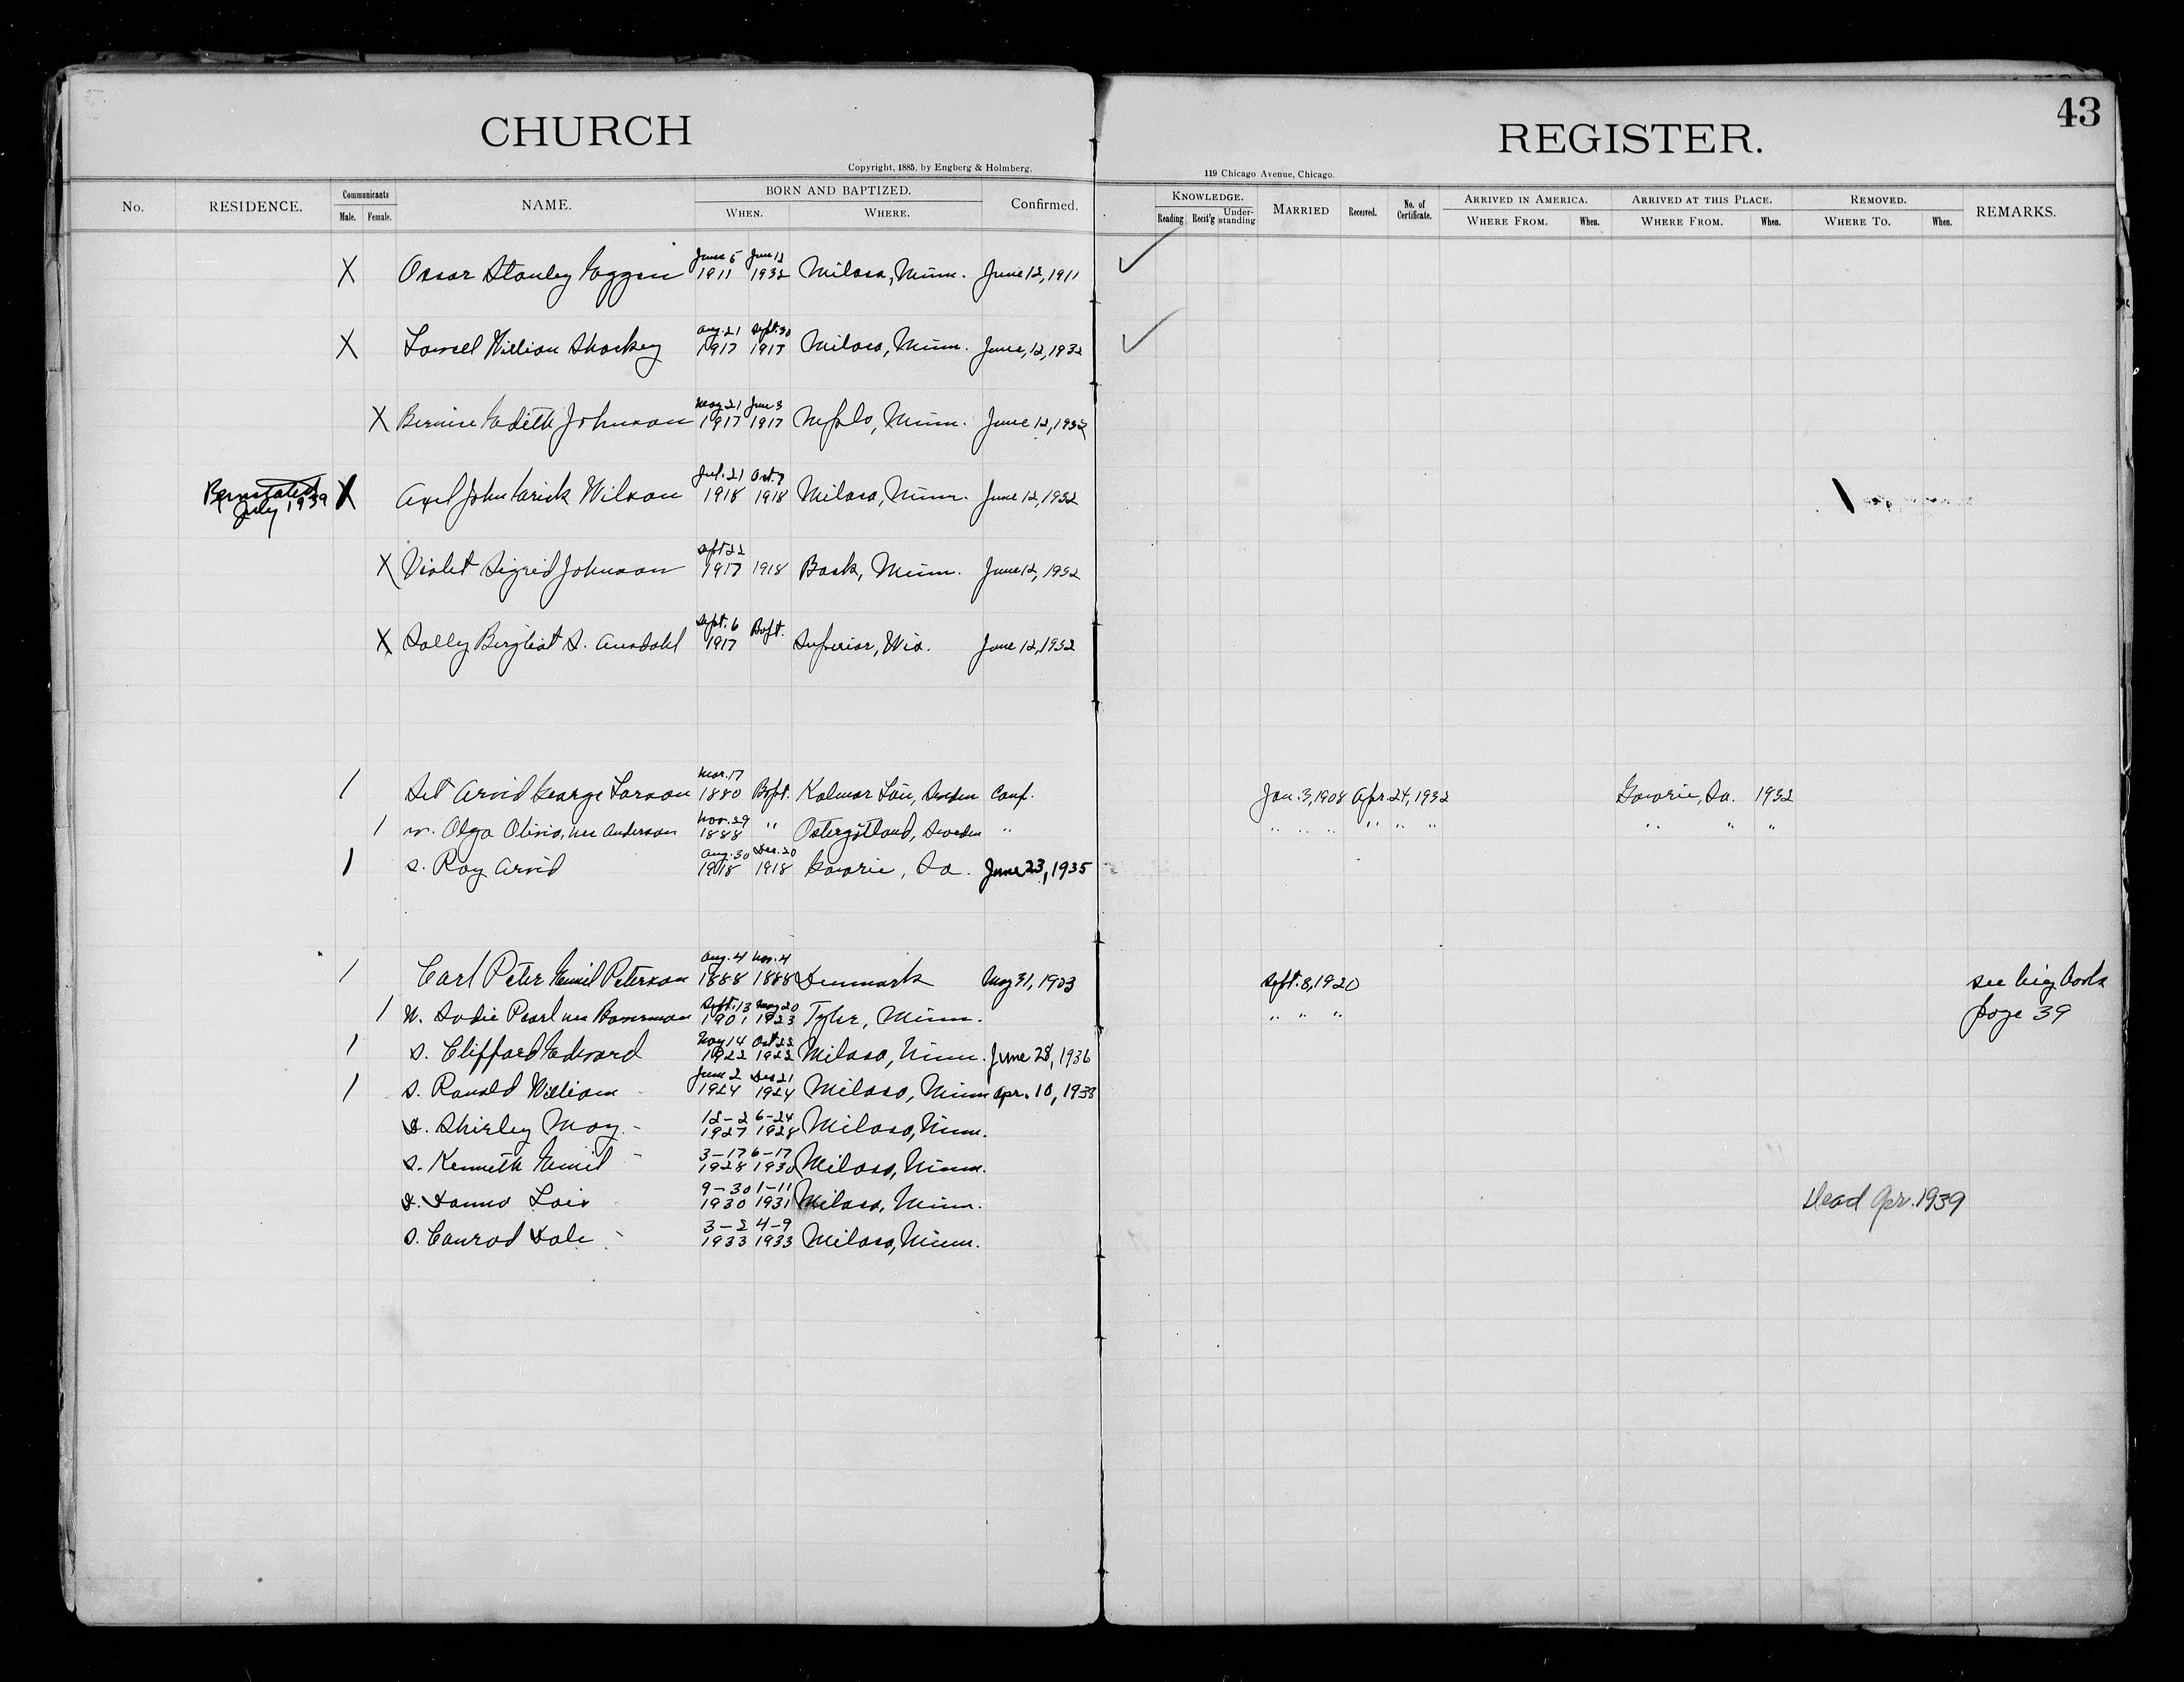 CHURCH REGISTER. 43
Copyright, 1885, by Engberg & Holmberg. 119 Chicago Avenue, Chicago.
No. RESIDENCE. Communicants Male. Female. NAME. BORN AND BAPTIZED. WHEN. WHERE. Confirmed. KNOWLEDGE. Reading Recit'g Under-standing MARRIED Received. No. of Certificate. ARRIVED IN AMERICA. WHERE FROM. When. ARRIVED AT THIS PLACE. WHERE FROM. When. REMOVED. WHERE TO. When. REMARKS.
June 5 June 12
X Oscar Stanley 1911 1932 Milaca, Minn. June 12, 1911 ✓
Aug. 21 Sept. 30
X Lowell William Sharkey 1917 1917 Milaca, Minn. June, 12, 1932 ✓
May 21 June 3
X Bernice Edith Johnson 1917 1917 Mpls, Minn. June 12, 1932
Jul. 21 Oct. 9
Reinstated July 1939 X Axel John Wilson 1918 1918 Milaca, Minn. June 12, 1932
Sept 22
X Violet Sigrid Johnson 1917 1918 Bock, Minn. June 12, 1932
Sept. 6 Bapt.
X Solly Bergliot S. Ausdahl 1917 Superior, Wis. June 12, 1932
Mar. 17
/ Set Arvid George Larson 1880 Bapt. Kalmar Län, Sweden Conf. Jan. 3, 1908 Apr. 24, 1932 Gowrie, Ia. 1932
Nov. 29
/ w. Olga Olivia, nee Anderson 1888 " Östergötland, Sweden " " " " " " " " " "
Aug. 30 Dec. 20
/ s. Roy Arvid 1918 1918 Gowrie, Ia. June 23, 1935
Aug. 4 Nov. 4
/ Carl Peter Emil Peterson 1888 1888 Denmark May 31, 1903 Sept. 8, 1920 see big book
Sept. 13 May 20
/ W. Sadie Pearl nee Bowerman 1901 1923 Tyler, Minn. " " " page 39
May 14 Oct 22
/ s. Clifford Edward 1922 1922 Milaca, Minn. June 28, 1936
June 2 Dec 21
/ s. Ronald William 1924 1924 Milaca, Minn Apr. 10, 1938
12-2 6-24
d. Shirley May - 1927 1928 Milaca, Minn.
3-17 6-17
s. Kenneth Emil - 1928 1930 Milaca, Minn.
9-30 1-11
d. Donna Lois 1930 1931 Milaca, Minn. Dead Apr. 1939
3-2 4-9
s. Conrad Dale - 1933 1933 Milaca, Minn.